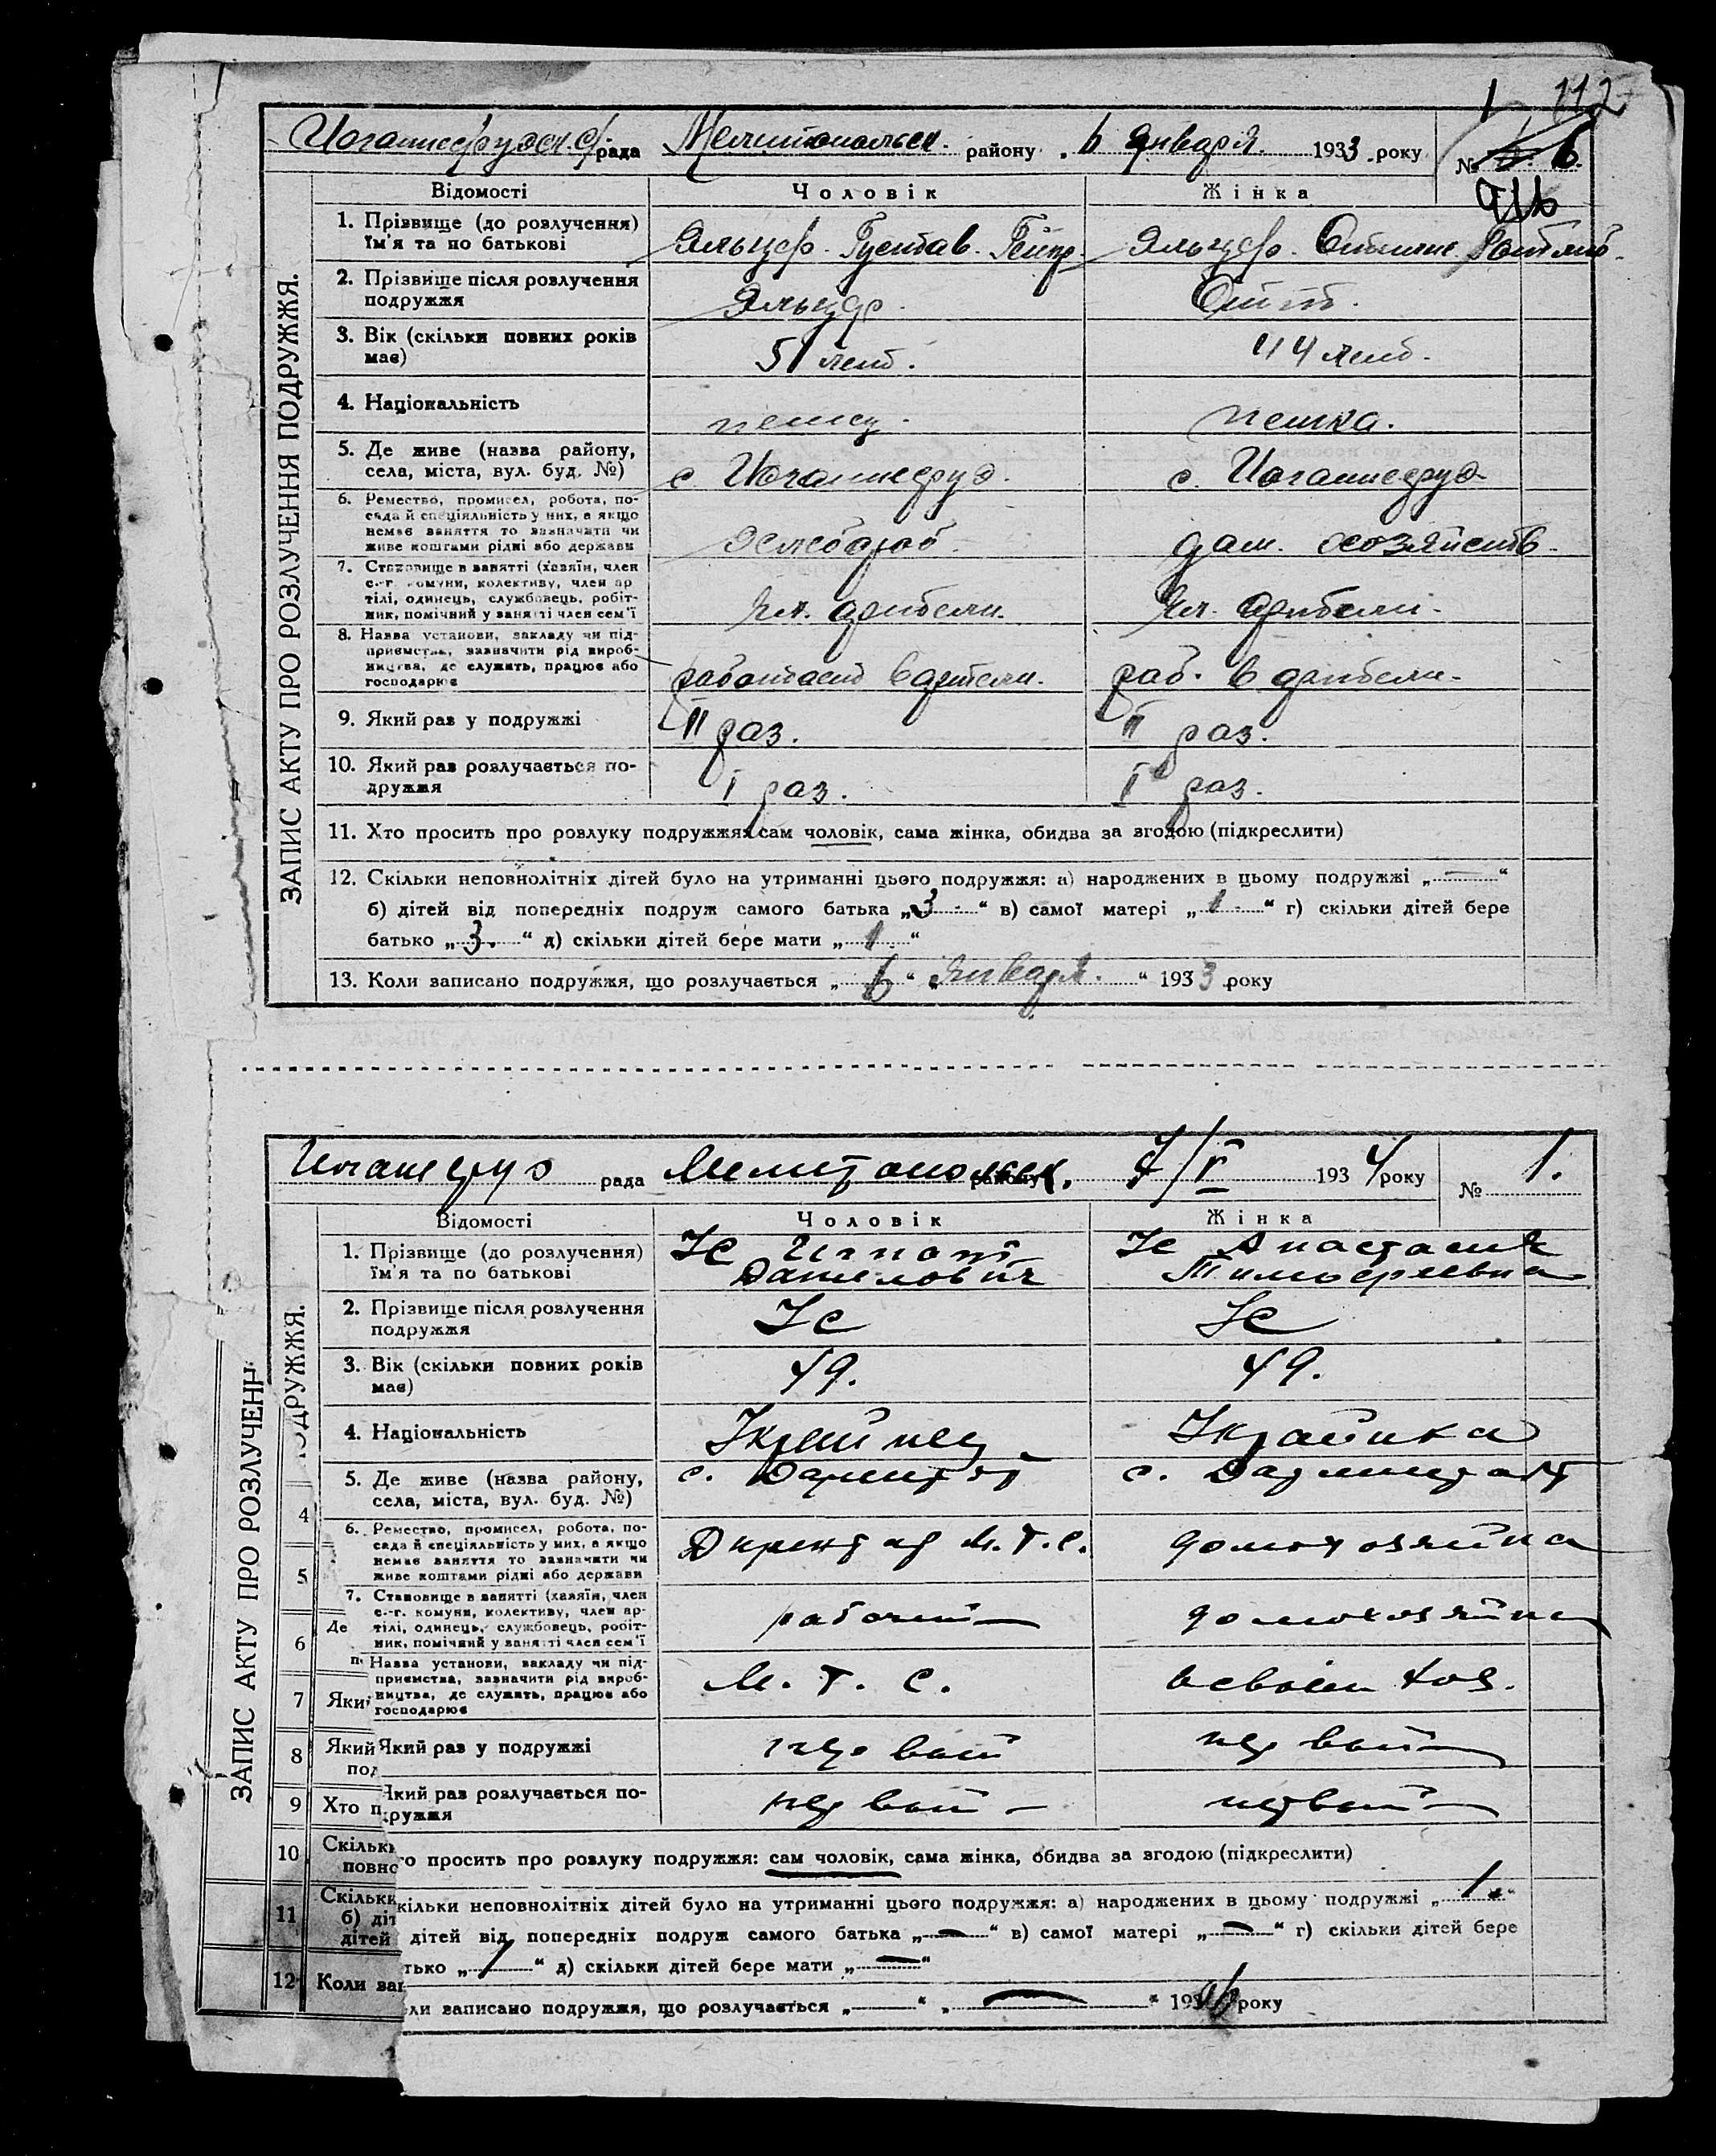 1 112
рада Мелитопольск. району 6 января 1933 року № 6.
ЗАПИС АКТУ ПРО РОЗЛУЧЕННЯ ПОДРУЖЖЯ.
Відомості Чоловік Жінка
1. Прізвище (до розлучення) ім'я та по батькові
Густав
2. Прізвище після розлучення подружжя
3. Вік (скільки повних років має)
51 лет. 44 лет.
4. Національність
немец. немка.
5. Де живе (назва району, села, міста, вул. буд. №)
с. Иоганнесруэ. с. Иоганнесруэ
6. Ремество, промисел, робота, посада й спеціяльність у них, а якщо немає заняття то зазначити чи живе коштами рідні або держави
хлебороб. дом. хозяйств.
7. Становище в занятті (хазяїн, член с.-г. комуни, колективу, член артілі, одинець, службовець, робітник, помічний у занятті член сем'ї
чл. артели. чл. артели.
8. Назва установи, закладу чи підприємства, зазначити рід виробництва, де служить, працює або господарює
работает в артели. раб. в артели.
9. Який раз у подружжі
II раз. II раз.
10. Який раз розлучається подружжя
I раз. I раз.
11. Хто просить про розлуку подружжя: сам чоловік, сама жінка, обидва за згодою (підкреслити)
12. Скільки неповнолітніх дітей було на утриманні цього подружжя: а) народжених в цьому подружжі „—“
б) дітей від попередніх подруж самого батька „3“ в) самої матері „1“ г) скільки дітей бере
батько „3.“ д) скільки дітей бере мати „1.“
13. Коли записано подружжя, що розлучається „6“ „января.“ 1933 року
рада Мелитопольск. району 7/V 1934 року № 1.
ЗАПИС АКТУ ПРО РОЗЛУЧЕНН
ОДРУЖЖЯ.
Відомості Чоловік Жінка
1. Прізвище (до розлучення) ім'я та по батькові
Ус Игнат Данилович Ус Анастасия Тимофеевна
2. Прізвище після розлучення подружжя
Ус Ус
3. Вік (скільки повних років має)
49. 49.
4. Національність
Украинец Украинка
5. Де живе (назва району, села, міста, вул. буд. №)
с. Дармштат с. Дармштат
6. Ремество, промисел, робота, посада й спеціяльність у них, а якщо немає заняття то зазначити чи живе коштами рідні або держави
Директор М.Т.С. домохозяйка
7. Становище в занятті (хазяїн, член с.-г. комуни, колективу, член артілі, одинець, службовець, робітник, помічний у занятті член сем'ї
рабочий домохозяйка
Назва установи, закладу чи підприємства, зазначити рід виробництва, де служить, працює або господарює
М.Т.С. в своем хоз.
Який раз у подружжі
первый первый
Який раз розлучається подружжя
первый первый
го просить про розлуку подружжя: сам чоловік, сама жінка, обидва за згодою (підкреслити)
кільки неповнолітніх дітей було на утриманні цього подружжя: а) народжених в цьому подружжі „1.“
дітей від попередніх подруж самого батька „—“ в) самої матері „—“ г) скільки дітей бере
тько „1“ д) скільки дітей бере мати „—“
ли записано подружжя, що розлучається „—“ „—“ року
4
5
6 Де
7 Який
8 Який
под
9 Хто п
10 Скільки
повно
11 Скільки
б) діт
дітей
12 Коли зап